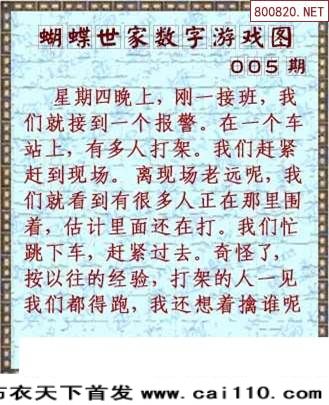 800820.NET
蝴蝶世家数字游戏图
005期
星期四晚上，刚一接班，我
们就接到一个报警。在一个车
站上，有多人打架。我们赶紧
赶到现场。离现场老远呢，我
们就看到有很多人正在那里围
着，估计里面还在打。我们忙
跳下车，赶紧过去。奇怪了，
按以往的经验，打架的人一见
我们都得跑，我还想着擒谁呢
衣天下首发 www.cai110.com